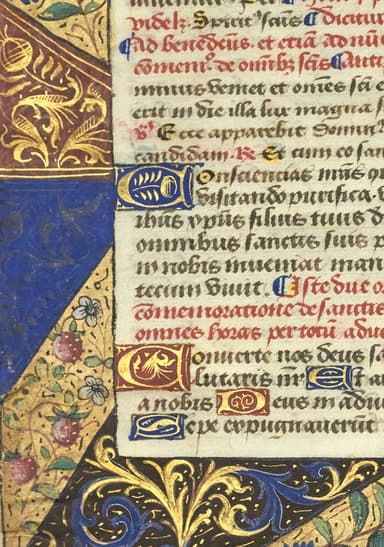 videlz. Spirit⁹ sc̄us Dicitur
Ad benedc̄us. et etiā ad nū
com̄emor. de om̄ibz sc̄is Auti
minus vemet et om̄es sc̄i e
erit in die illa lux magna
℣ Ecce apparebit Domin
candidam. ℟. Et cum eo san
Consciencias nr̄as q
visitando purifica.
ihūs xpūs filius tuus d
omnibus sanctis suis p
in nobis inueniat man
tecum viuit. Iste due o
com̄emoratione de sanctis
omnes horas per totū adue
Conuerte nos deus sa
lutaris nr̄. Et a
a nobis Deus in adiu
Sepe expugnauerūt